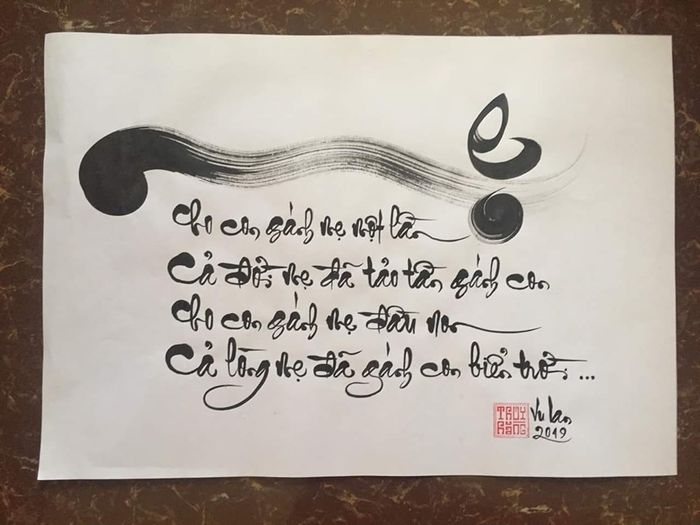 Cho con gánh mẹ một lần
Cả đời mẹ đã tảo tần gánh con
Cho con gánh mẹ đầu non
Cả lòng mẹ đã gánh con biển trời...
THUỶ
RĂNG
Vu Lan
2019